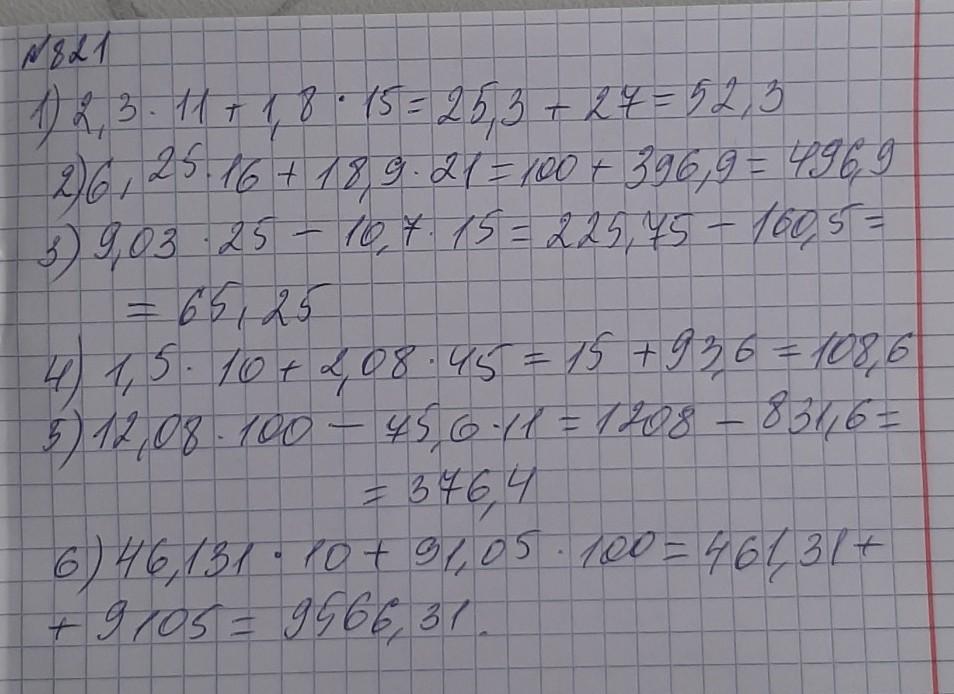 №821
1) 2,3 · 11 + 1,8 · 15 = 25,3 + 27 = 52,3
2) 6,25 · 16 + 18,9 · 21 = 100 + 396,9 = 496,9
3) 9,03 · 25 - 10,7 · 15 = 225,75 - 160,5 =
= 65,25
4) 1,5 · 10 + 2,08 · 45 = 15 + 93,6 = 108,6
5) 12,08 · 100 - 75,6 · 11 = 1208 - 831,6 =
= 376,4
6) 46,131 · 10 + 91,05 · 100 = 461,31 +
+ 9105 = 9566,31.